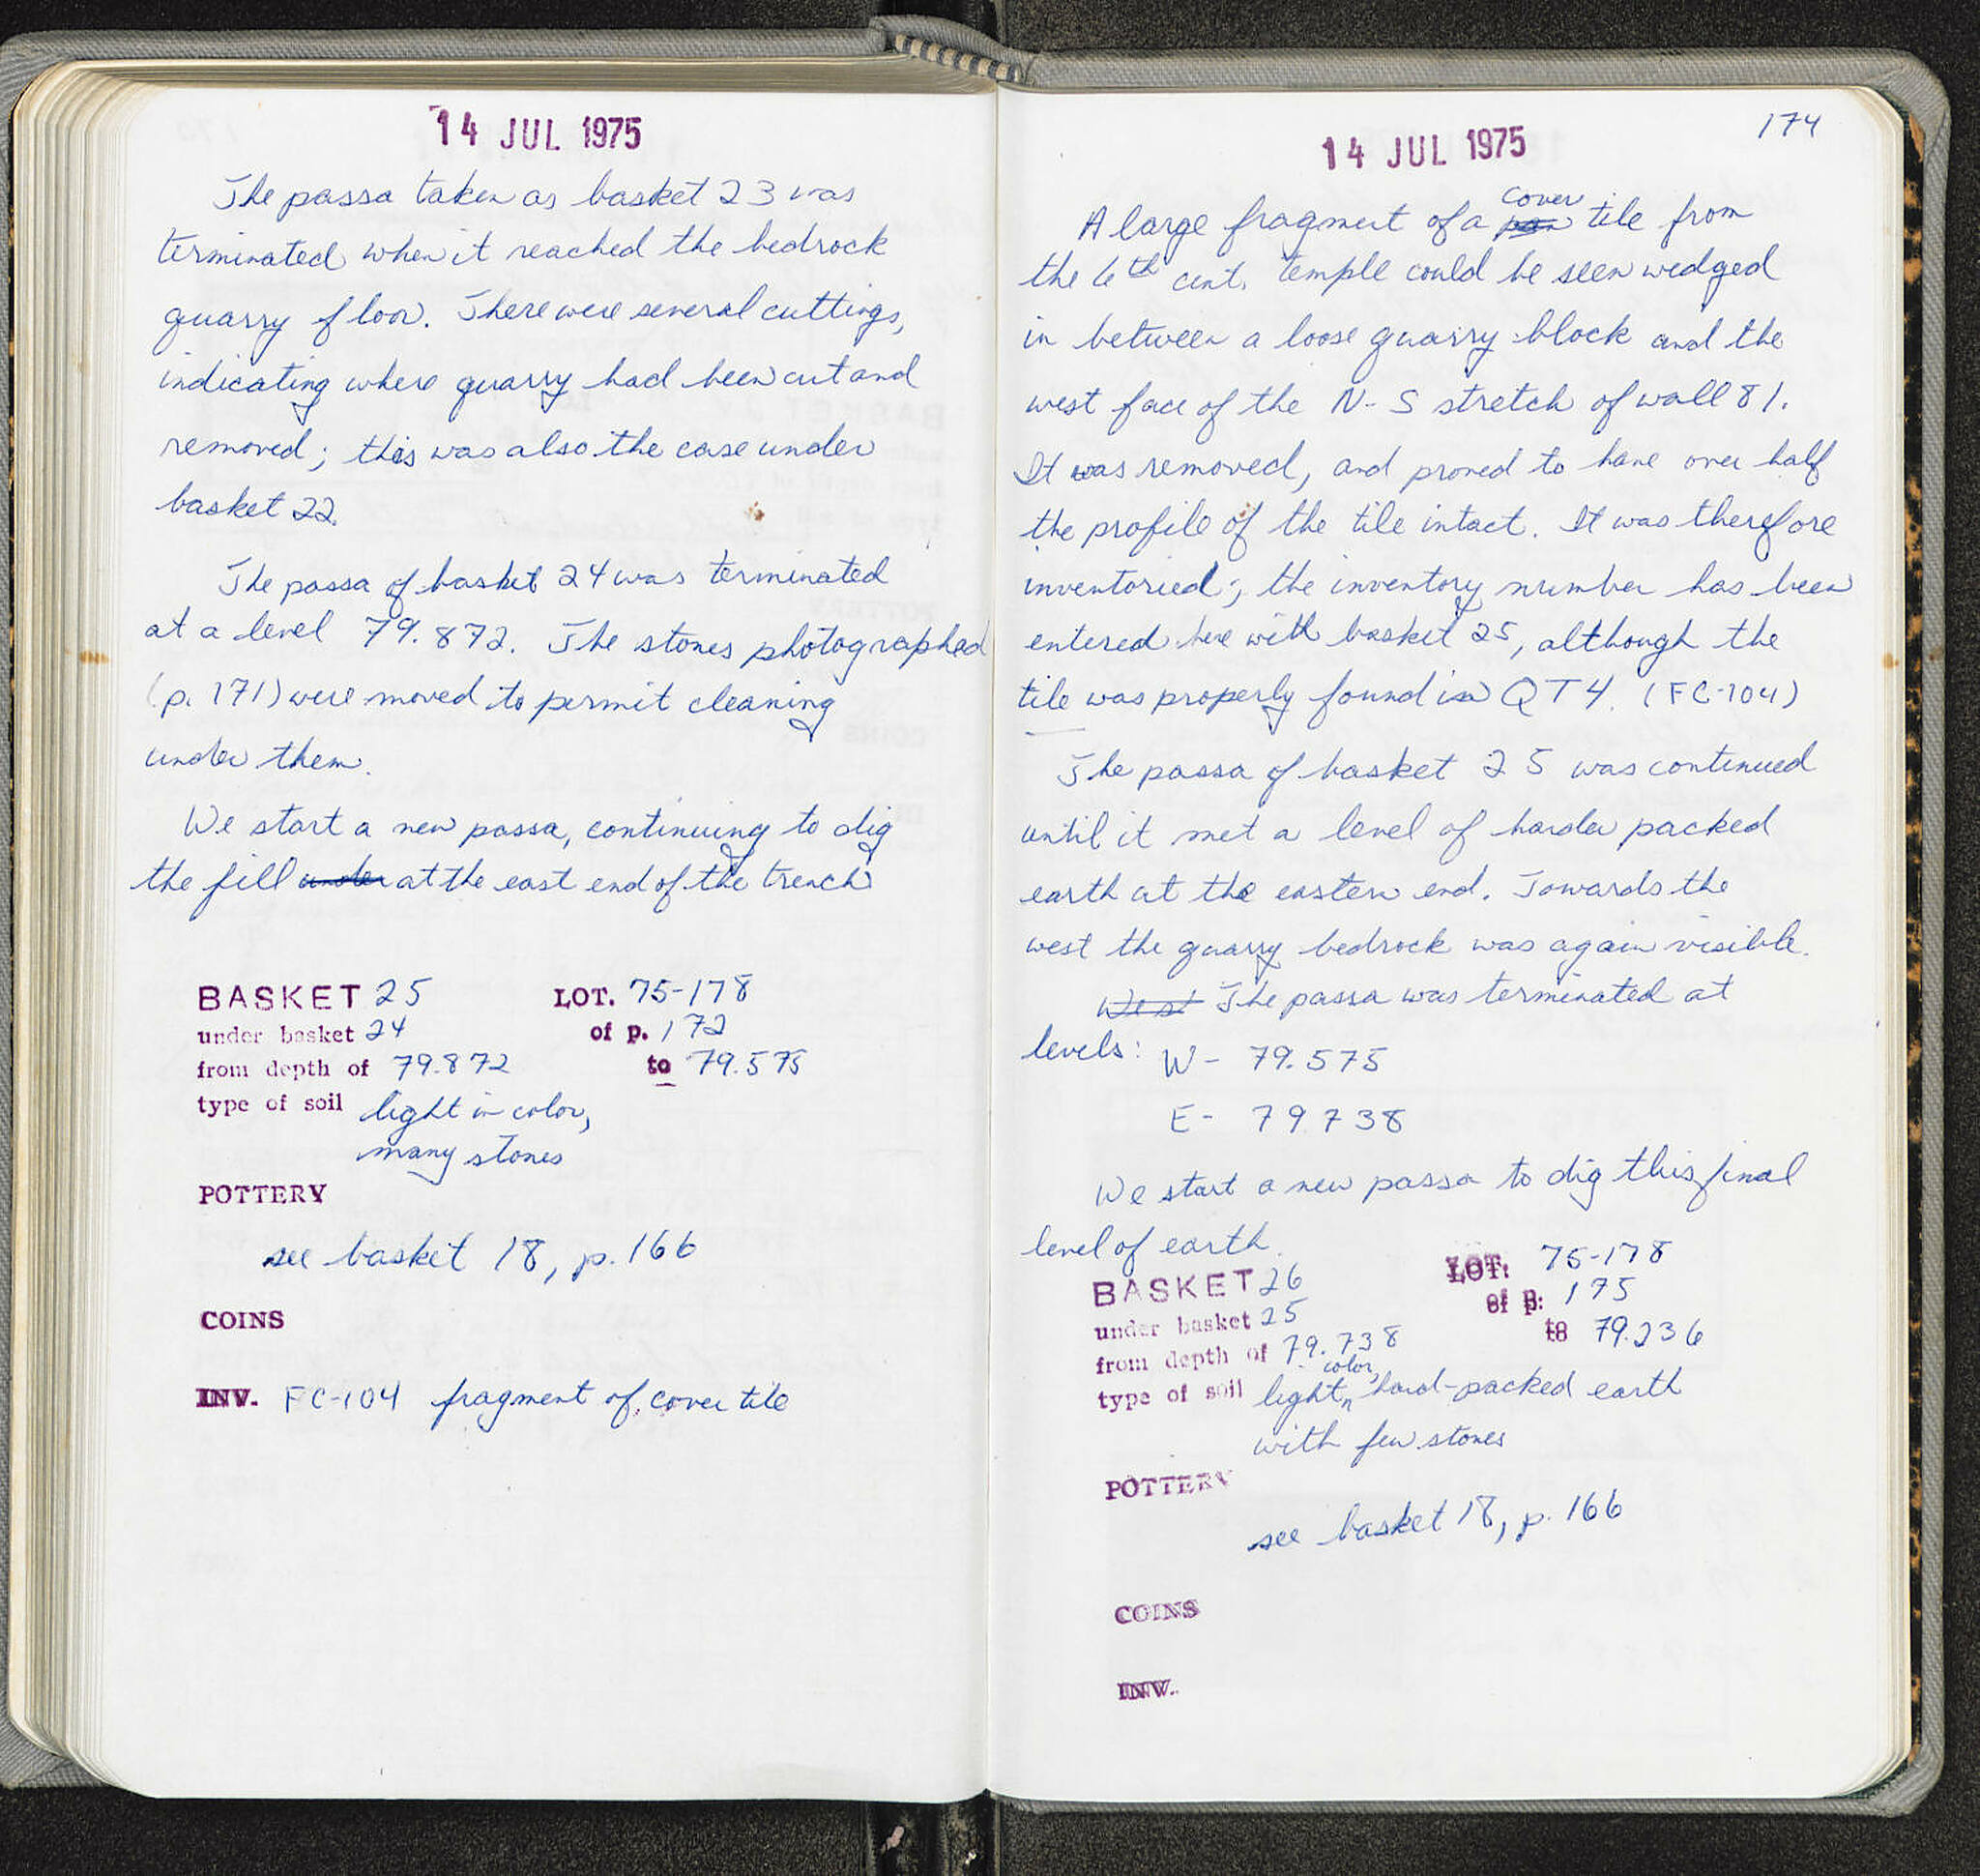 14 JUL 1975
The passa taken as basket 23 was
terminated when it reached the bedrock
quarry floor. There were several cuttings,
indicating where quarry had been cut and
removed; this was also the case under
basket 22.
The passa of basket 24 was terminated
at a level 79.872. The stones photographed
(p. 171) were moved to permit cleaning
under them.
We start a new passa, continuing to dig
the fill under at the east end of the trench
BASKET 25 LOT. 75-178
under basket 24 of p. 172
from depth of 79.872 to 79.575
type of soil light in color,
many stones
POTTERY
see basket 18, p. 166
COINS
INV. FC-104 fragment of cover tile
174
14 JUL 1975
cover
A large fragment of a pan tile from
the 6th cent. temple could be seen wedged
in between a loose quarry block and the
west face of the N-S stretch of wall 81.
It was removed, and proved to have over half
the profile of the tile intact. It was therefore
inventoried; the inventory number has been
entered here with basket 25, although the
tile was properly found in QT4. (FC-104)
The passa of basket 25 was continued
until it met a level of harder packed
earth at the eastern end. Towards the
west the quarry bedrock was again visible.
West The passa was terminated at
levels: W - 79.575
E - 79.738
We start a new passa to dig this final
level of earth.
BASKET 26 LOT. 75-178
under basket 25 of p. 175
from depth of 79.738 to 79.236
color,
type of soil light hard-packed earth
with few stones
POTTERY
see basket 18, p. 166
COINS
INV.